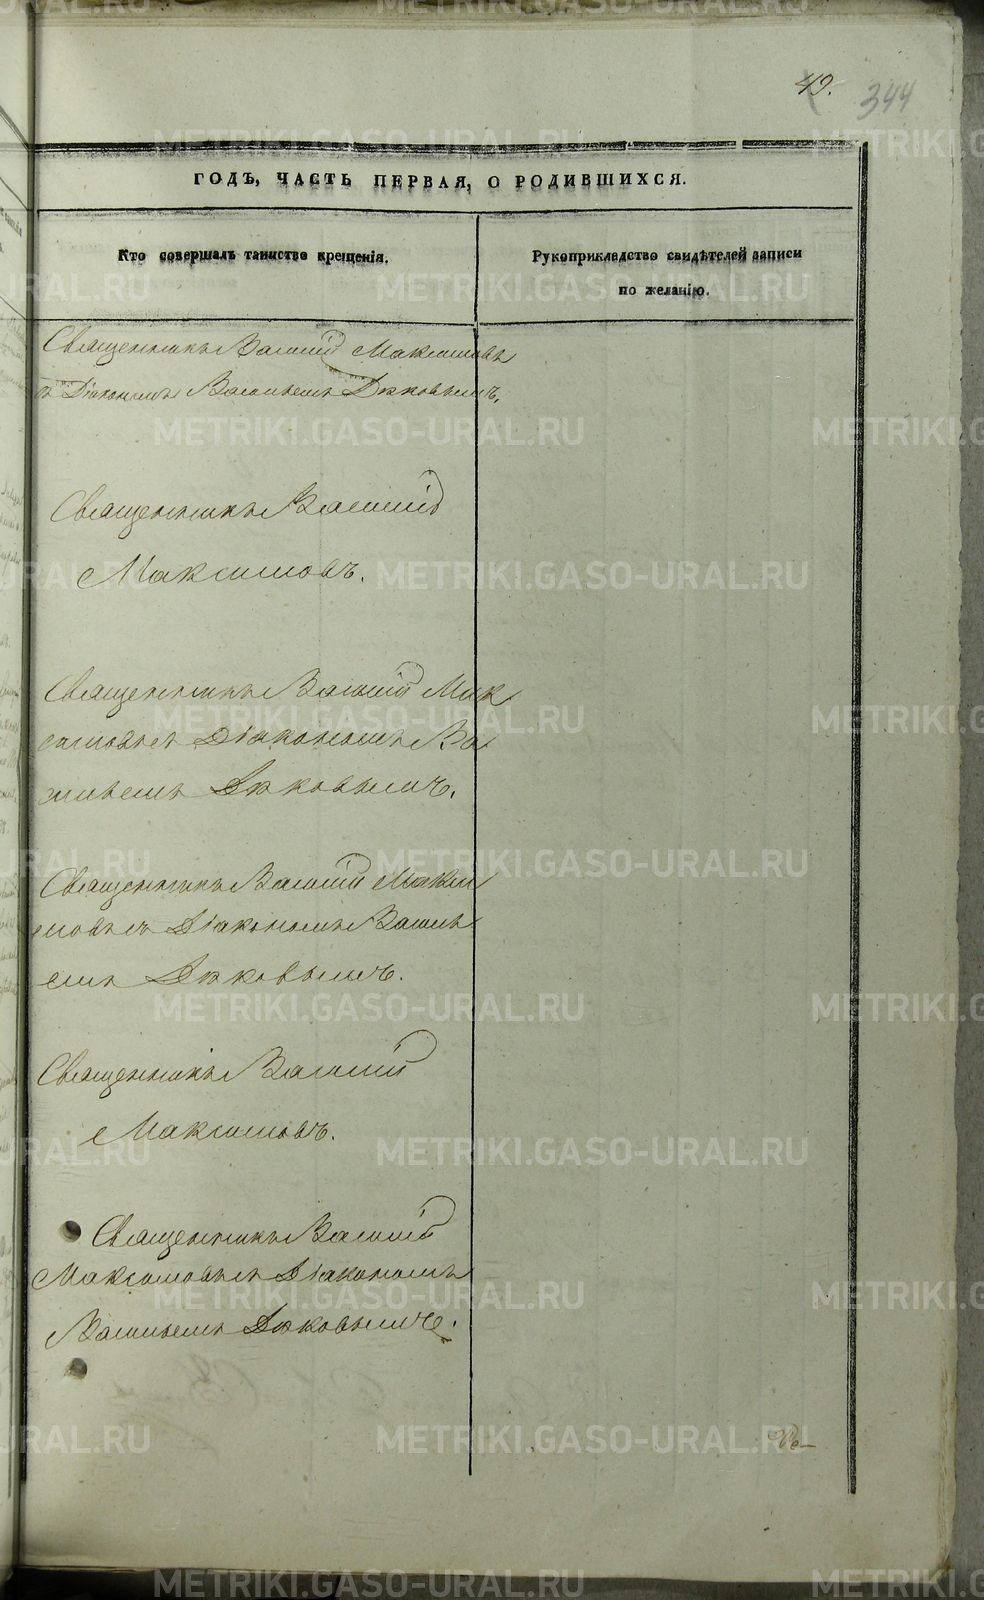 49.
344
ГОДЪ, ЧАСТЬ ПЕРВАЯ, О РОДИВШИХСЯ.
Кто совершалъ таинство крещенія.
Рукоприкладство свидѣтелей записи
по желанію.
Священникъ Василій Максимовъ
съ Діакономъ Васильемъ Дьковымъ.
Священникъ Василій
Максимовъ.
Священникъ Василій Мак
симовъ съ Діакономъ Ва
сильемъ Дьковымъ.
Священникъ Василій Макси
мовъ съ Діакономъ Василь
емъ Дьковымъ.
Священникъ Василій
Максимовъ.
Священникъ Василій
Максимовъ съ Діакономъ
Васильемъ Дьковымъ.
METRIKI.GASO-URAL.RU